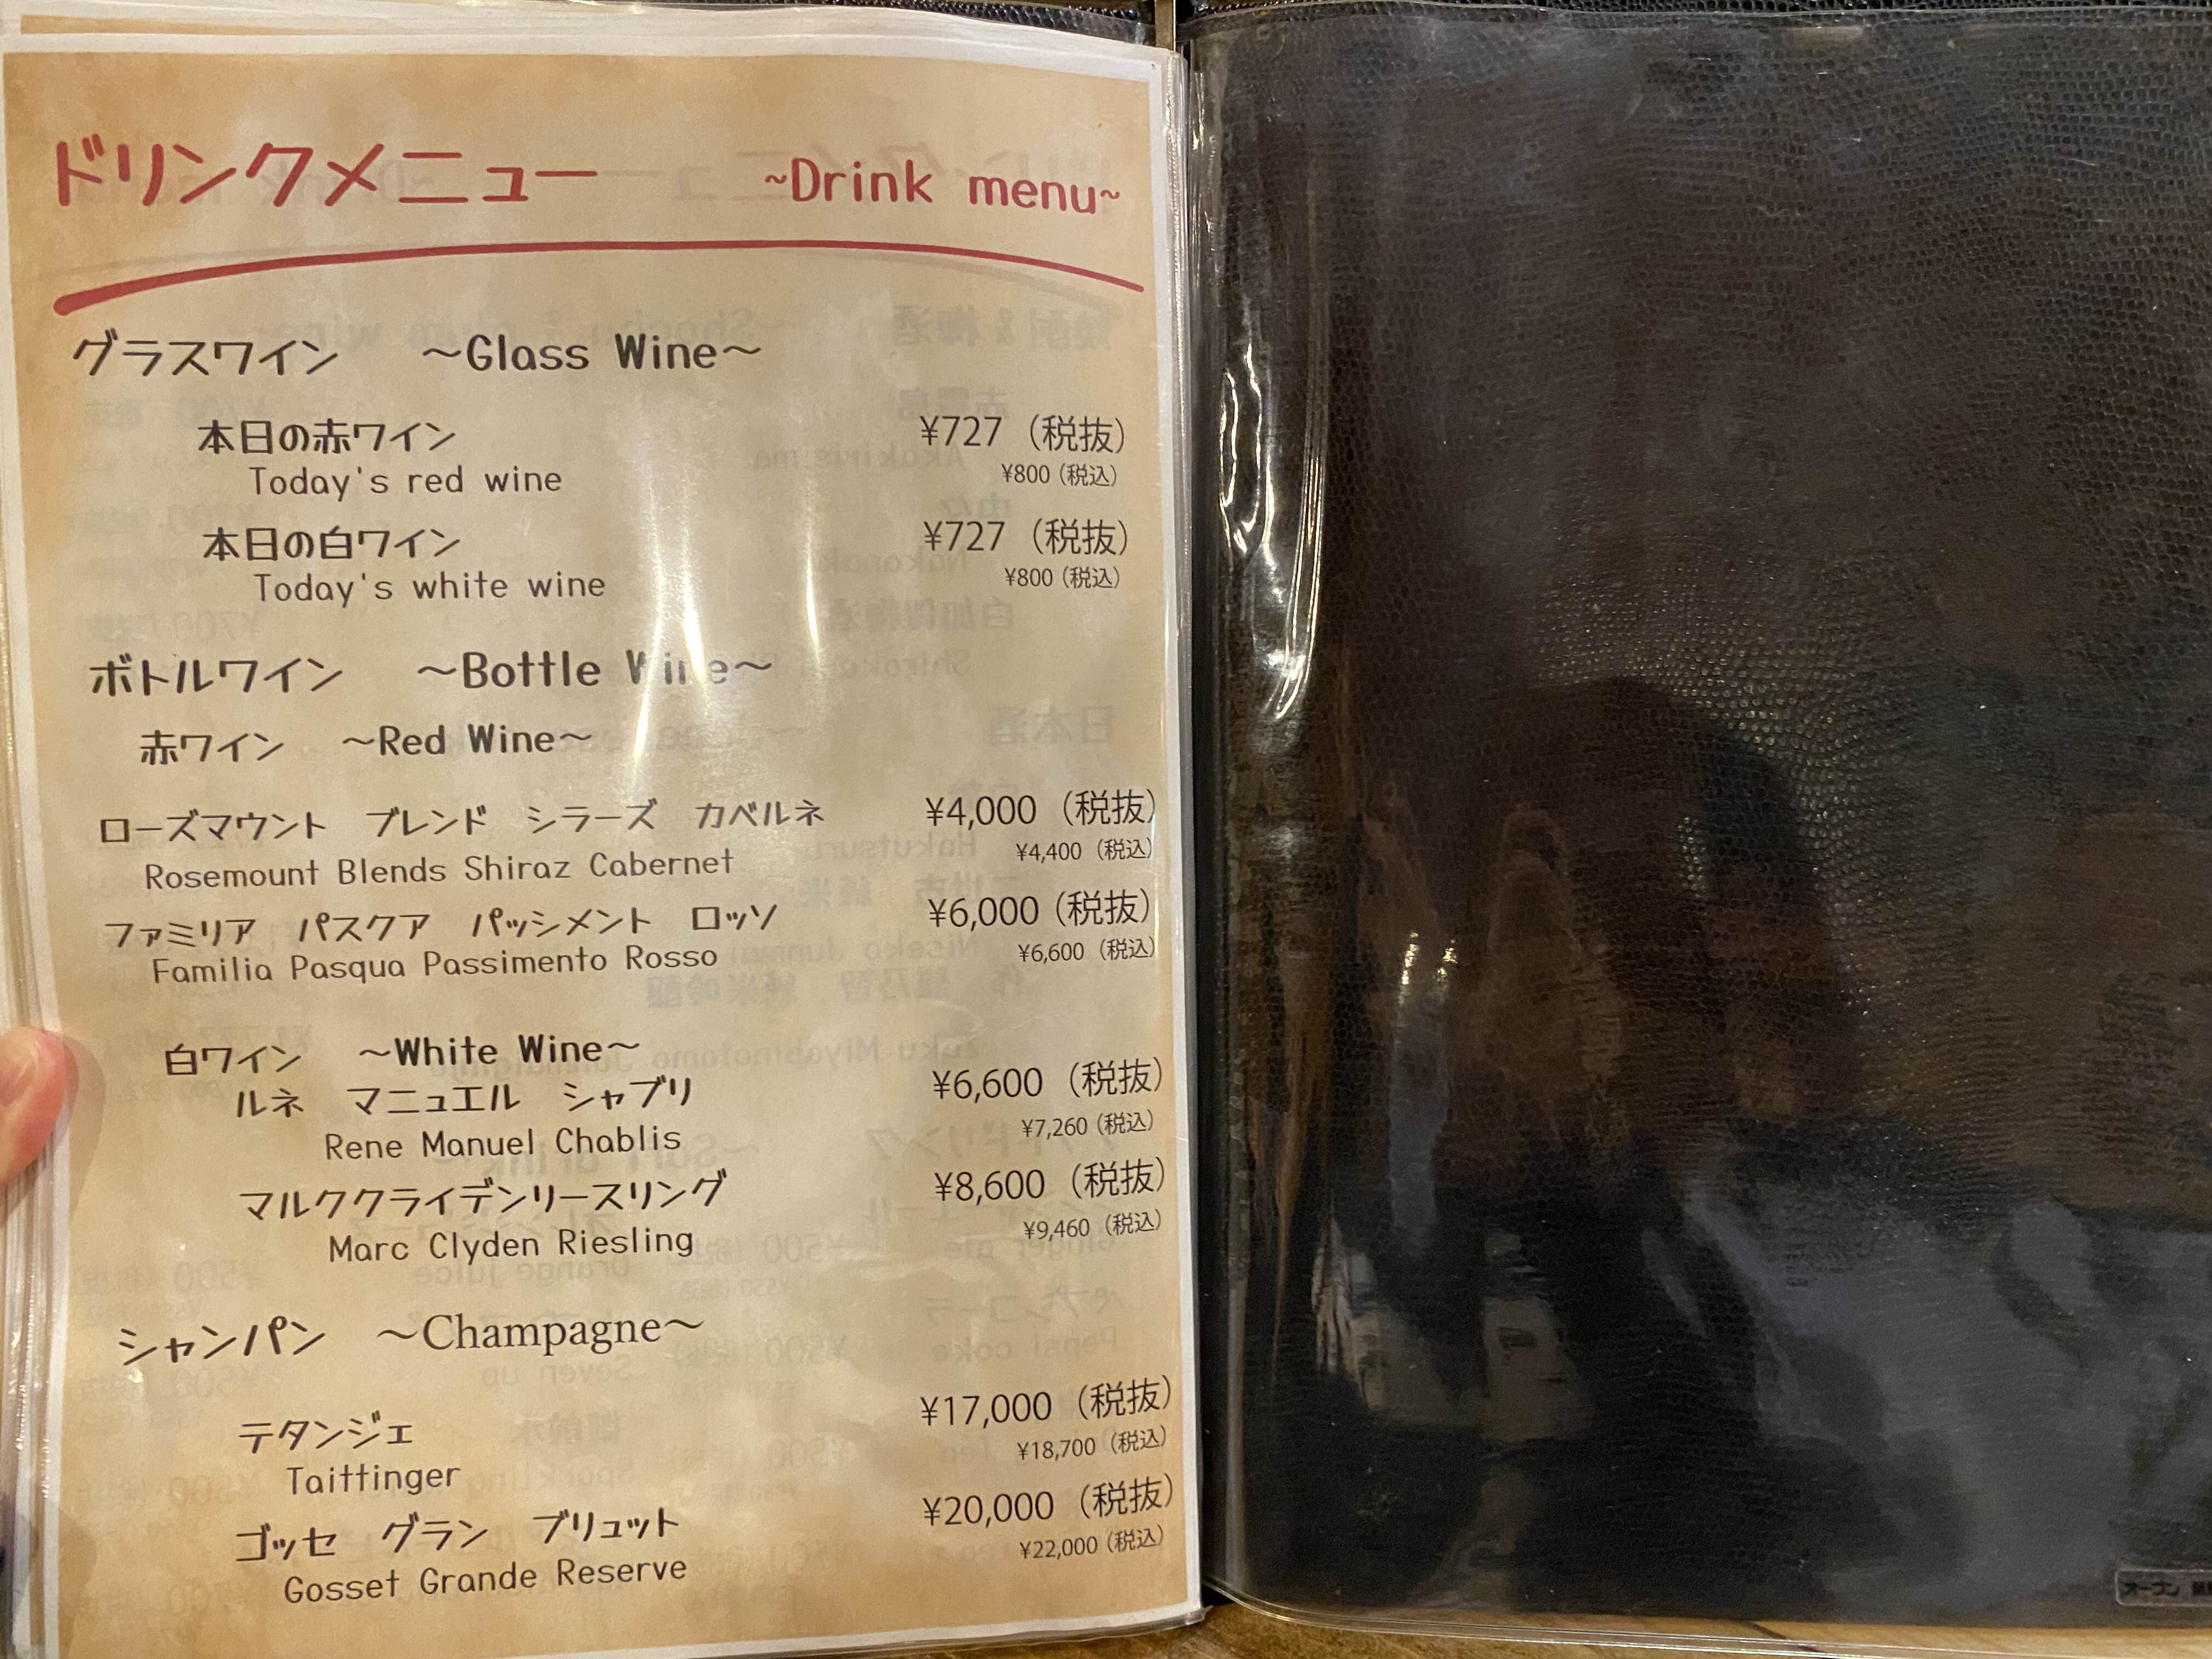 ドリンクメニュー ~Drink menu~
グラスワイン ～Glass Wine～
本日の赤ワイン ¥727（税抜）
Today's red wine ¥800（税込）
本日の白ワイン ¥727（税抜）
Today's white wine ¥800（税込）
ボトルワイン ～Bottle Wine～
赤ワイン ～Red Wine～
ローズマウント ブレンド シラーズ カベルネ ¥4,000（税抜）
Rosemount Blends Shiraz Cabernet ¥4,400（税込）
ファミリア パスクア パッシメント ロッソ ¥6,000（税抜）
Familia Pasqua Passimento Rosso ¥6,600（税込）
白ワイン ～White Wine～
ルネ マニュエル シャブリ ¥6,600（税抜）
Rene Manuel Chablis ¥7,260（税込）
マルククライデンリースリング ¥8,600（税抜）
Marc Clyden Riesling ¥9,460（税込）
シャンパン ～Champagne～
テタンジェ ¥17,000（税抜）
Taittinger ¥18,700（税込）
ゴッセ グラン ブリュット ¥20,000（税抜）
Gosset Grande Reserve ¥22,000（税込）
オープン